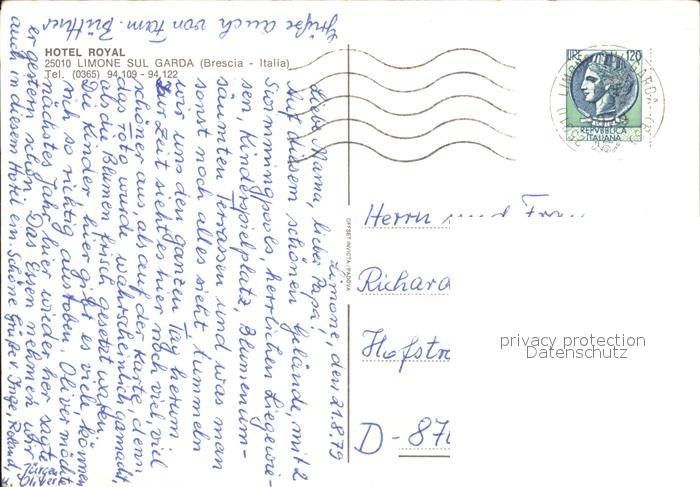 HOTEL ROYAL
25010 LIMONE SUL GARDA (Brescia - Italia)
Tel. (0365) 94.109 - 94.122
Limone, den 21.8.79
Liebe Mama, lieber Papa,
Auf diesem schönen Gelände, mit 2
Swimmingpools, herrlichen Liegewie-
sen, Kinderspielplatz, Blumenum-
säumten Terrassen und was man
sonst noch alles sieht tummeln
wir uns den ganzen Tag herum.
Zur Zeit sieht es hier noch viel, viel
schöner aus, als auf der Karte, denn
das Foto wurde wahrscheinlich gemacht,
als die Blumen frisch gesetzt waren.
Die Kinder, hier gibt es viele, können
sich so richtig austoben. Oliver möchte
nächstes Jahr hier wieder her sagte
er gestern schon. Das Essen nehmen wir
auch in diesem Hotel ein. Schöne Grüße Inge, Roland,
Jürgen
u. Oliver
Grüße auch von Fam. Büttner
OFFSET INVICTA / PADOVA
LIRE 120
REPVBBLICA
ITALIANA
LIMONE SUL GARDA
Herrn und Frau
Richard
Hofstr
D-87
privacy protection
Datenschutz